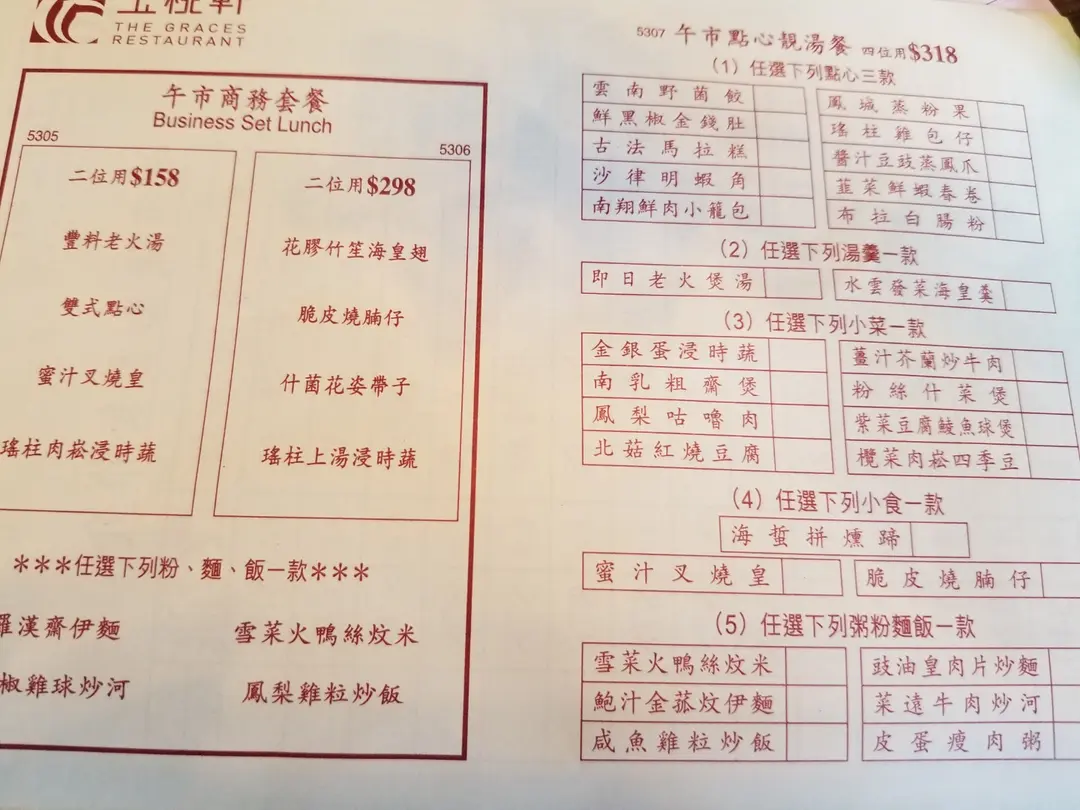 THE GRACES
RESTAURANT
午市商務套餐
Business Set Lunch
5305
二位用$158
豐料老火湯
雙式點心
蜜汁叉燒皇
瑤柱肉崧浸時蔬
5306
二位用$298
花膠竹笙海皇翅
脆皮燒腩仔
什菌花姿帶子
瑤柱上湯浸時蔬
***任選下列粉、麵、飯一款***
羅漢齋伊麵
雪菜火鴨絲炆米
椒雞球炒河
鳳梨雞粒炒飯
5307 午市點心靚湯餐 四位用$318
(1) 任選下列點心三款
雲南野菌餃
鳳城蒸粉果
鮮黑椒金錢肚
瑤柱雞包仔
古法馬拉糕
醬汁豆豉蒸鳳爪
沙律明蝦角
韮菜鮮蝦春卷
南翔鮮肉小籠包
布拉白腸粉
(2) 任選下列湯羹一款
即日老火煲湯
水雲發菜海皇羹
(3) 任選下列小菜一款
金銀蛋浸時蔬
薑汁芥蘭炒牛肉
南乳粗齋煲
粉絲什菜煲
鳳梨咕嚕肉
紫菜豆腐鯪魚球煲
北菇紅燒豆腐
欖菜肉崧四季豆
(4) 任選下列小食一款
海蜇拼燻蹄
蜜汁叉燒皇
脆皮燒腩仔
(5) 任選下列粥粉麵飯一款
雪菜火鴨絲炆米
豉油皇肉片炒麵
鮑汁金菇炆伊麵
菜遠牛肉炒河
咸魚雞粒炒飯
皮蛋瘦肉粥